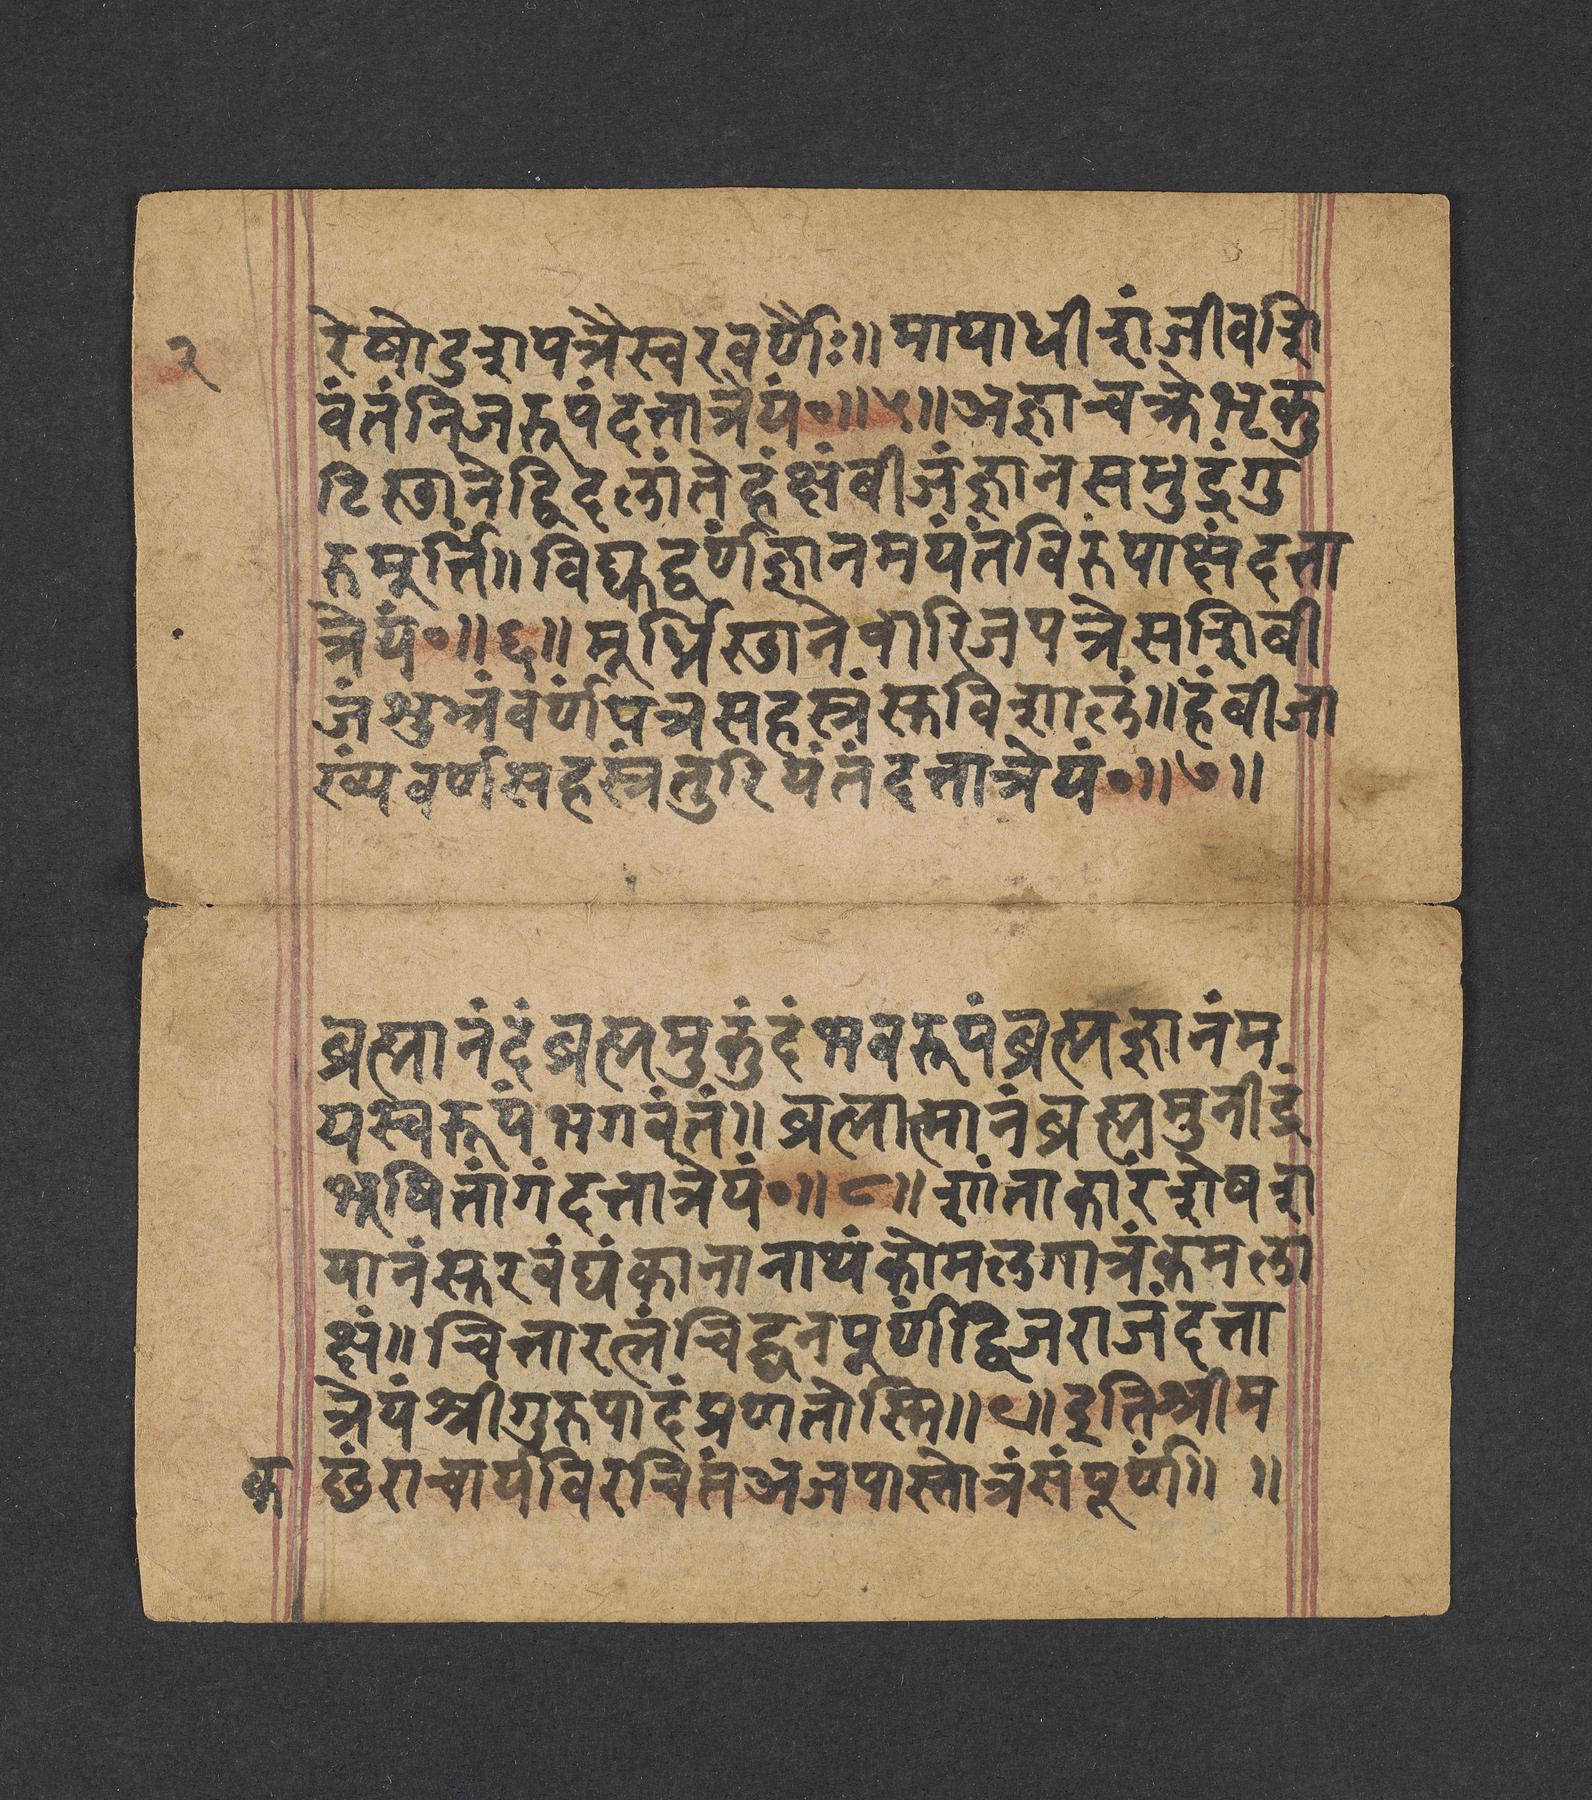 २
रेषोडशपत्रैस्वरवर्णैः॥ मायाधीशंजीवशि
वंतंनिजरूपंदत्तात्रेयं०॥५॥अज्ञाचक्रेभृकु
टिस्थानेद्विदलांतेहंक्षंबीजंज्ञानसमुद्रंगु
रुमूर्त्तिं॥विद्युद्वर्णंज्ञानमयंतंविरुपाक्षंदत्ता
त्रेयं०॥६॥मूर्ध्निस्थानेवारिजपत्रेसशिबी
जंशुभ्रंवर्णंपत्रसहस्त्रंस्कविशालं॥हंबीजा
ख्यंवर्णसहस्त्रंतुरियंतंदत्तात्रेयं०॥७॥
ब्रह्मानंदंब्रह्ममुकुंदंभवरूपंब्रह्मज्ञानंम
यस्वरूपंभगवंतं॥ब्रह्मात्मानंब्रह्ममुनींद्रं
भूषितांगंदत्तात्रेयं०॥८॥शांताकारंशेषश
यानंस्करवंद्यंकानानाथंकोमलगात्रंकमला
क्षं॥चिंतारत्नंचिद्घनपूर्णंद्विजराजंदत्ता
त्रेयंश्रीगुरुपादंप्रणतोस्मि॥९॥इतिश्रीम
क छंराचार्यविरचितंअजपास्तोत्रंसंपूर्णं॥ ॥